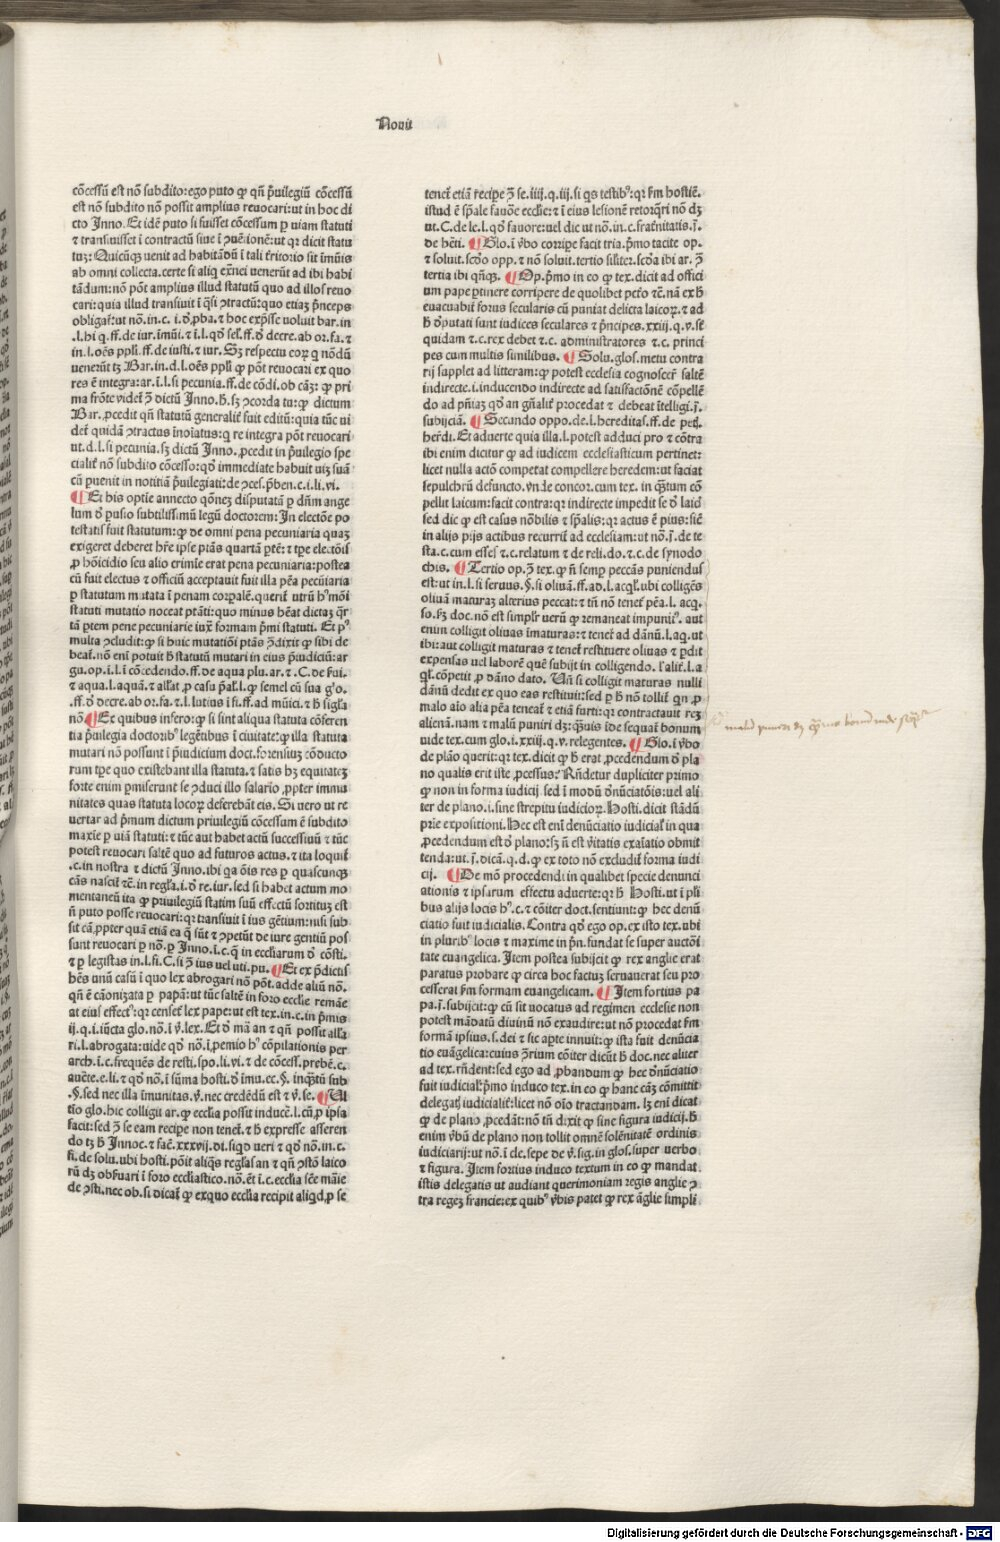 Nouit
cōcessū est nō subdito: ego puto ꝙ qñ p̄uilegiū cōcessū
est nō subdito nō possit amplius reuocari: ut in hoc di
cto Inno. Et idē puto si fuisset cōcessum ꝑ uiam statuti
⁊ transiuisset ī contractū siue ī ꝯuētionē: ut qꝛ dicit statu
tuꝫ: Quicūqꝫ uenit ad habitādū ī tali t̄ritorio sit īmūis
ab omni collecta. certe si aliq̄ exn̄ci uenerūt ad ibi habi
tādum: nō pōt amplius illud statutū quo ad illos reuo
cari: quia illud transiuit ī q̄si ꝯtractū: quo etiaꝫ p̄nceps
obligat᷑: ut nō. in. c. i. ð. ꝓba. ⁊ hoc exp̄sse uoluit bar. in
.l. hi q. ff. de iur. īmūi. ⁊ ī. l. qð sel. ff. ð decre. ab or. fa. ⁊
in. l. oēs ppl̄i. ff. de iusti. ⁊ iur. Sꝫ respectu eoꝝ q̄ nōdū
uenerūt tꝫ Bar. in. d. l. oēs ppl̄i ꝙ pōt reuocari ex quo
res ē integra: ar. ī. l. si pecunia. ff. de cōdi. ob cāꝫ: ꝙ pri
ma frōte videt᷑ ꝫ dictū Inno. h̄. sꝫ ꝯcorda tu: ꝙ dictum
Bar. ꝓcedit qñ statutū generalit᷑ fuit editū: quia tūc ui
det᷑ quidā ꝯtractus īnoīatus: q̄ re integra pōt reuocari
ut. d. l. si pecunia. sꝫ dictū Inno. ꝓcedit in p̄uilegio spe
cialit᷑ nō subdito cōcesso: qð immediate habuit uiꝫ suā
cū ꝑuenit in notitiā p̄uilegiati: de ꝯces. p̄ben. c. i. li. vi.
¶ Et his optīe annecto qōneꝫ disputatā ꝑ dñm ange
lum ð ꝑusio subtilissimū legū doctorem: In electōe po
testatis fuit statutum: ꝙ de omni pena pecuniaria quaꝫ
exigeret deberet hr̄e ipse ptās quartā ꝑtē: ⁊ tꝑe electōis
ꝓ hōicidio seu alio crimīe erat pena pecuniaria: postea
cū fuit electus ⁊ officiū acceptauit fuit illa pēa pecūiaria
ꝑ statutum mutata ī penam corꝑalē. querit᷑ utrū hꝰmōi
statuti mutatio noceat ptāti: quo minus hēat dictaꝫ q̄r
tā ꝑtem pene pecuniarie iuxᵗ formam p̄mi statuti. Et pᵒ
multa ꝯcludit: ꝙ si huic mutatiōi ptās ꝯ̄dixit ꝙ sibi de
beat᷑. nō enī potuit h̄ statutū mutari in eius p̄iudiciū: ar
gu. op. ī. l. ī cōcedendo. ff. de aqua plu. ar. ⁊. C. de ẜui.
⁊ aqua. l. aquā. ⁊ allat᷑ ꝓ casu p̄al᷑. l. ꝙ semel cū sua glo.
.ff. ð decre. ab or. fa. ⁊. l. lutius ī fi. ff. ad mūici. ⁊ h̄ sigl̄a
nō ¶ Ex quibus infero: ꝙ si sint aliqua statuta cōferen
tia p̄uilegia doctoribꝰ legētibus ī ciuitate: ꝙ illa statuta
mutari nō possunt ī p̄iudicium doct. forensiuꝫ cōducto
rum tꝑe quo existebant illa statuta. ⁊ satis hꝫ equitateꝫ
forte enim ꝑmiserunt se ꝯduci illo salario ꝓpter immu
nitates quas statuta locoꝝ deferebāt eis. Si uero ut re
uertar ad p̄mum dictum priuilegiū cōcessum ē subdito
maxīe ꝑ uiā statuti: ⁊ tūc aut habet actū successiuū ⁊ tūc
potest reuocari saltē quo ad futuros actus. ⁊ ita loquit᷑
.c. in nostra ⁊ dictū Inno. ibi qa ōis res ꝑ quascunqꝫ
cās nascit᷑ ⁊c̄. in regl̄a. i. ð re. iur. sed si habet actum mo
mentaneū ita ꝙ priuilegiū statim suū effectū sortituꝫ est
ñ puto posse reuocari: qꝛ transiuit ī ius gētium: nisi sub
sit cā ꝓpter quā etiā ea q̄ sūt ⁊ ꝯpetūt de iure gentiū pos
sunt reuocari ꝑ nō. ꝑ Inno. i. c. q̄ in eccl̄iarum ð cōsti.
⁊ ꝑ legistas in. l. fi. C. si ꝯ̄ ius uel uti. pu. ¶ Et ex p̄dictis
hēs unū casū ī quo lex abrogari nō pōt. adde aliū nō.
qñ ē cānonizata ꝑ papā: ut tūc saltē in foro eccl̄ie remāe
at eius effectꝰ: qꝛ censet᷑ lex pape: ut est tex. in. c. in p̄mis
ij. q. i. iūcta glo. nō. ī v̄. lex. Et ð mā an ⁊ qñ possit alᵗa
ri. l. abrogata: uide qð nō. ī. ꝓemio hꝰ cōpilationis per
arch. ī. c. frequēs de resti. spo. li. vi. ⁊ de cōcess. prebē. c.
auctē. e. li. ⁊ qð nō. ī sūma hosti. ð imu. ec. §. inqᷓtū sub
.§. sed nec illa īmunitas. v̄. nec credēdū est ⁊ v̄. se. ¶ Ul
tīo glo. hic colligit ar. ꝙ eccl̄ia possit inducē. l. cū ꝓ ipsa
facit: sed ꝯ̄ se eam recipe non tenet᷑. ⁊ h̄ expresse asseren
do tꝫ h̄ Innoc. ⁊ facē. xxxvij. di. siqð ueri ⁊ qð nō. in. c.
fi. de solu. ubi hosti. pōit aliq̄s regl̄as an ⁊ qñ ꝯstō laico
rū dꝫ obẜuari ī foro eccl̄iastico. nō. ēt ī. c. eccl̄ia scē mᵃie
de ꝯsti. nec ob. si dicat᷑ ꝙ exquo eccl̄ia recipit aliqd ꝓ se
tenet᷑ etiā recipe ꝯ̄ se. iiij. q. iij. si qs testibꝰ: qꝛ ẜm hostiē.
istud ē sp̄ale fauōe eccl̄ie: ⁊ ī eius lesionē retorq̄ri nō dꝫ
ut. C. de le. l. qð fauore: uel dic ut nō. in. c. fraternitatis. j̄.
de hēti. ¶ Glo. ī v̄bo corripe facit tria. p̄mo tacite op.
⁊ soluit. scðo opp. ⁊ nō soluit. tertio silit᷑. scða ibi ar. ꝯ̄
tertia ibi qn̄qꝫ. ¶ Op. p̄mo in eo ꝙ tex. dicit ad offici
um pape ꝑtinere corripere de quolibet pctō ⁊c̄. nā ex h̄
euacuabit᷑ forus secularis cū puniat delicta laicoꝝ. ⁊ ad
h̄ ðputati sunt iudices seculares ⁊ p̄ncipes. xxiij. q. v. se
quidam ⁊. c. rex debet ⁊. c. administratores ⁊. c. princi
pes cum multis similibus. ¶ Solu. glos. metu contra
rij supplet ad litteram: ꝙ potest ecclesia cognoscer᷑ saltē
indirecte. i. inducendo indirecte ad satisfactōnē cōpellē
do ad pn̄iaꝫ qð an gn̄alit᷑ procedat ⁊ debeat ītelligi. j̄.
subijciā. ¶ Secundo oppo. de. l. hereditas. ff. de peti.
her̄di. Et aduerte quia illa. l. potest adduci pro ⁊ cōtra
ibi enim dicitur ꝙ ad iudicem ecclesiasticum pertinet:
licet nulla actō competat compellere heredem: ut faciat
sepulchrū defuncto. vnde concor. cum tex. in qᷓtum cō
pellit laicum: facit contra: qꝛ indirecte impedit se ð laicꝭ
sed dic ꝙ est casus nōbilis ⁊ sp̄alis: qꝛ actus ē pius: sic̄
in alijs pijs actibus recurrit᷑ ad ecclesiam: ut nō. j̄. de te
sta. c. cum esses ⁊. c. relatum ⁊ de reli. do. ⁊. c. de synodo
chis. ¶ Tertio op. ꝯ̄ tex. ꝙ ñ semp̄ peccās puniendus
est: ut in. l. si seruus. §. si oliuā. ff. ad. l. acql᷑. ubi colligēs
oliuā maturaꝫ alterius peccat: ⁊ tn̄ nō tenet᷑ pēa. l. acq.
so. sꝫ doc. nō est simplr̄ uerū ꝙ remaneat impuniꝰ. aut
enim colligit oliuas īmaturas: ⁊ tenet᷑ ad dānū. l. aq. ut
ibi: aut colligit maturas ⁊ tenet᷑ restituere oliuas ⁊ ꝑdit
expensas uel laborē quē subijt in colligendo. l᷑ alit᷑. l. a
ql᷑. cōpetit ꝓ dāno dato. Un̄ si colligit maturas nulli
dānū dedit ex quo eas restituit: sed ꝑ h̄ nō tollit᷑ qn̄ ꝓ
malo aīo alia pēa teneat᷑ ⁊ etiā furti: qꝛ contractauit reꝫ
alienā. nam ⁊ malū puniri dꝫ: qᷓuis īde sequat᷑ bonum
uide tex. cum glo. ī. xxiij. q. v. relegentes. ¶ Glo. ī v̄bo
de plāo querit: qꝛ tex. dicit ꝙ h̄ erat ꝓcedendum ð pla
no qualis erit iste ꝓcessus? Rn̄detur dupliciter primo
ꝙ non in forma iudicij. sed ī modū ðnūciatōis: uel ali
ter de plano. i. sine strepitu iudicioꝝ. Hosti. dicit stādū
pr̄ie expositioni. Hec est enī denūciatio iudicial᷑ in qua
ꝓcedendum est ð plano: sꝫ ñ est v̄itatis exaīatio obmit
tenda: ut. j̄. dicā. q. d. ꝙ ex toto nō excludit᷑ forma iudi
cij. ¶ De mō procedendi in qualibet specie denunci
ationis ⁊ ipsarum effectu aduerte: qꝛ h̄ Hosti. ut ī pl̄i
bus alijs locis hꝰ. c. ⁊ cōiter doct. sentiunt: ꝙ hec denū
ciatio fuit iudicialis. Contra qð ego op. ex isto tex. ubi
in pluribꝰ locis ⁊ maxime in p̄n. fundat se super auctōi
tate euangelica. Item postea subijcit ꝙ rex anglie erat
paratus probare ꝙ circa hoc factuꝫ seruauerat seu pro
cesserat ẜm formam euangelicam. ¶ Item fortius pa
pa. j̄. subijcit: ꝙ cū sit uocatus ad regimen ecclesie non
potest mādatū diuinū non exaudire: ut nō procedat ẜm
formā ipsius. s. dei ⁊ sic aꝑte innuit: ꝙ ista fuit denūcia
tio euāgelica: cuius ꝯ̄rium cōiter dicūt h̄ doc. nec aliter
ad tex. rn̄dent: sed ego ad ꝓbandum ꝙ hec ðnūciatio
fuit iudicial᷑ p̄mo induco tex. in eo ꝙ hanc cāꝫ cōmittit
delegatꝭ iudicialit᷑: licet nō oīo tractandam. lꝫ enī dicat
ꝙ de plano ꝓcedāt: nō tn̄ dixit ꝙ sine figura iudicij. h̄
enim v̄bū de plano non tollit omnē solēnitatē ordinis
iudiciarij: ut nō. ī de. sepe de v̄. sig. in glos. super verbo
⁊ figura. Item fortius induco textum in eo ꝙ mandat
istis delegatis ut audiant querimoniam regis anglie ꝯ
tra regeꝫ francie: ex quibꝰ v̄bis patet ꝙ rex āglie simpli
malū puniri dꝫ qᷓuis bonū inde seqᵗʳ
Digitalisierung gefördert durch die Deutsche Forschungsgemeinschaft - DFG